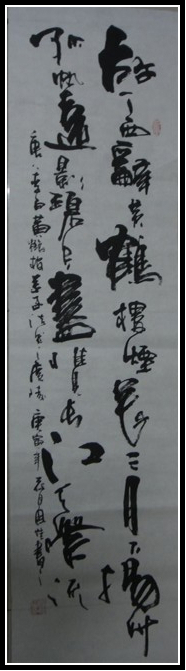 故人西辭黃鶴樓煙花三月下揚州
孤帆遠影碧空盡惟見長江天際流
唐人李白黃鶴樓送孟浩然之廣陵 庚寅年